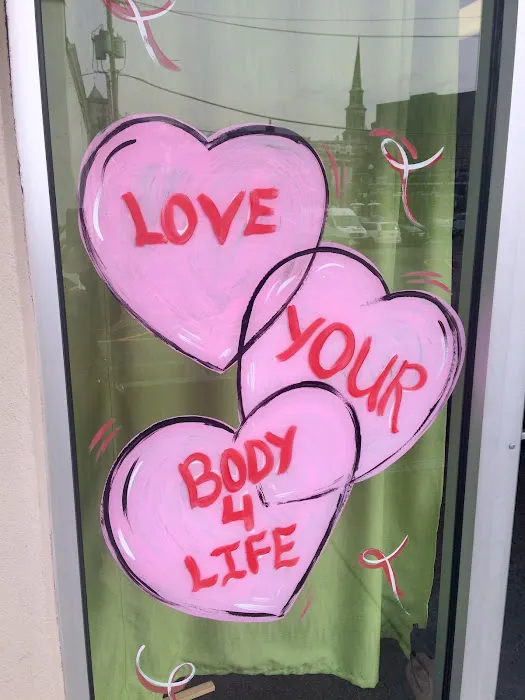 LOVE
YOUR
BODY
4
LIFE